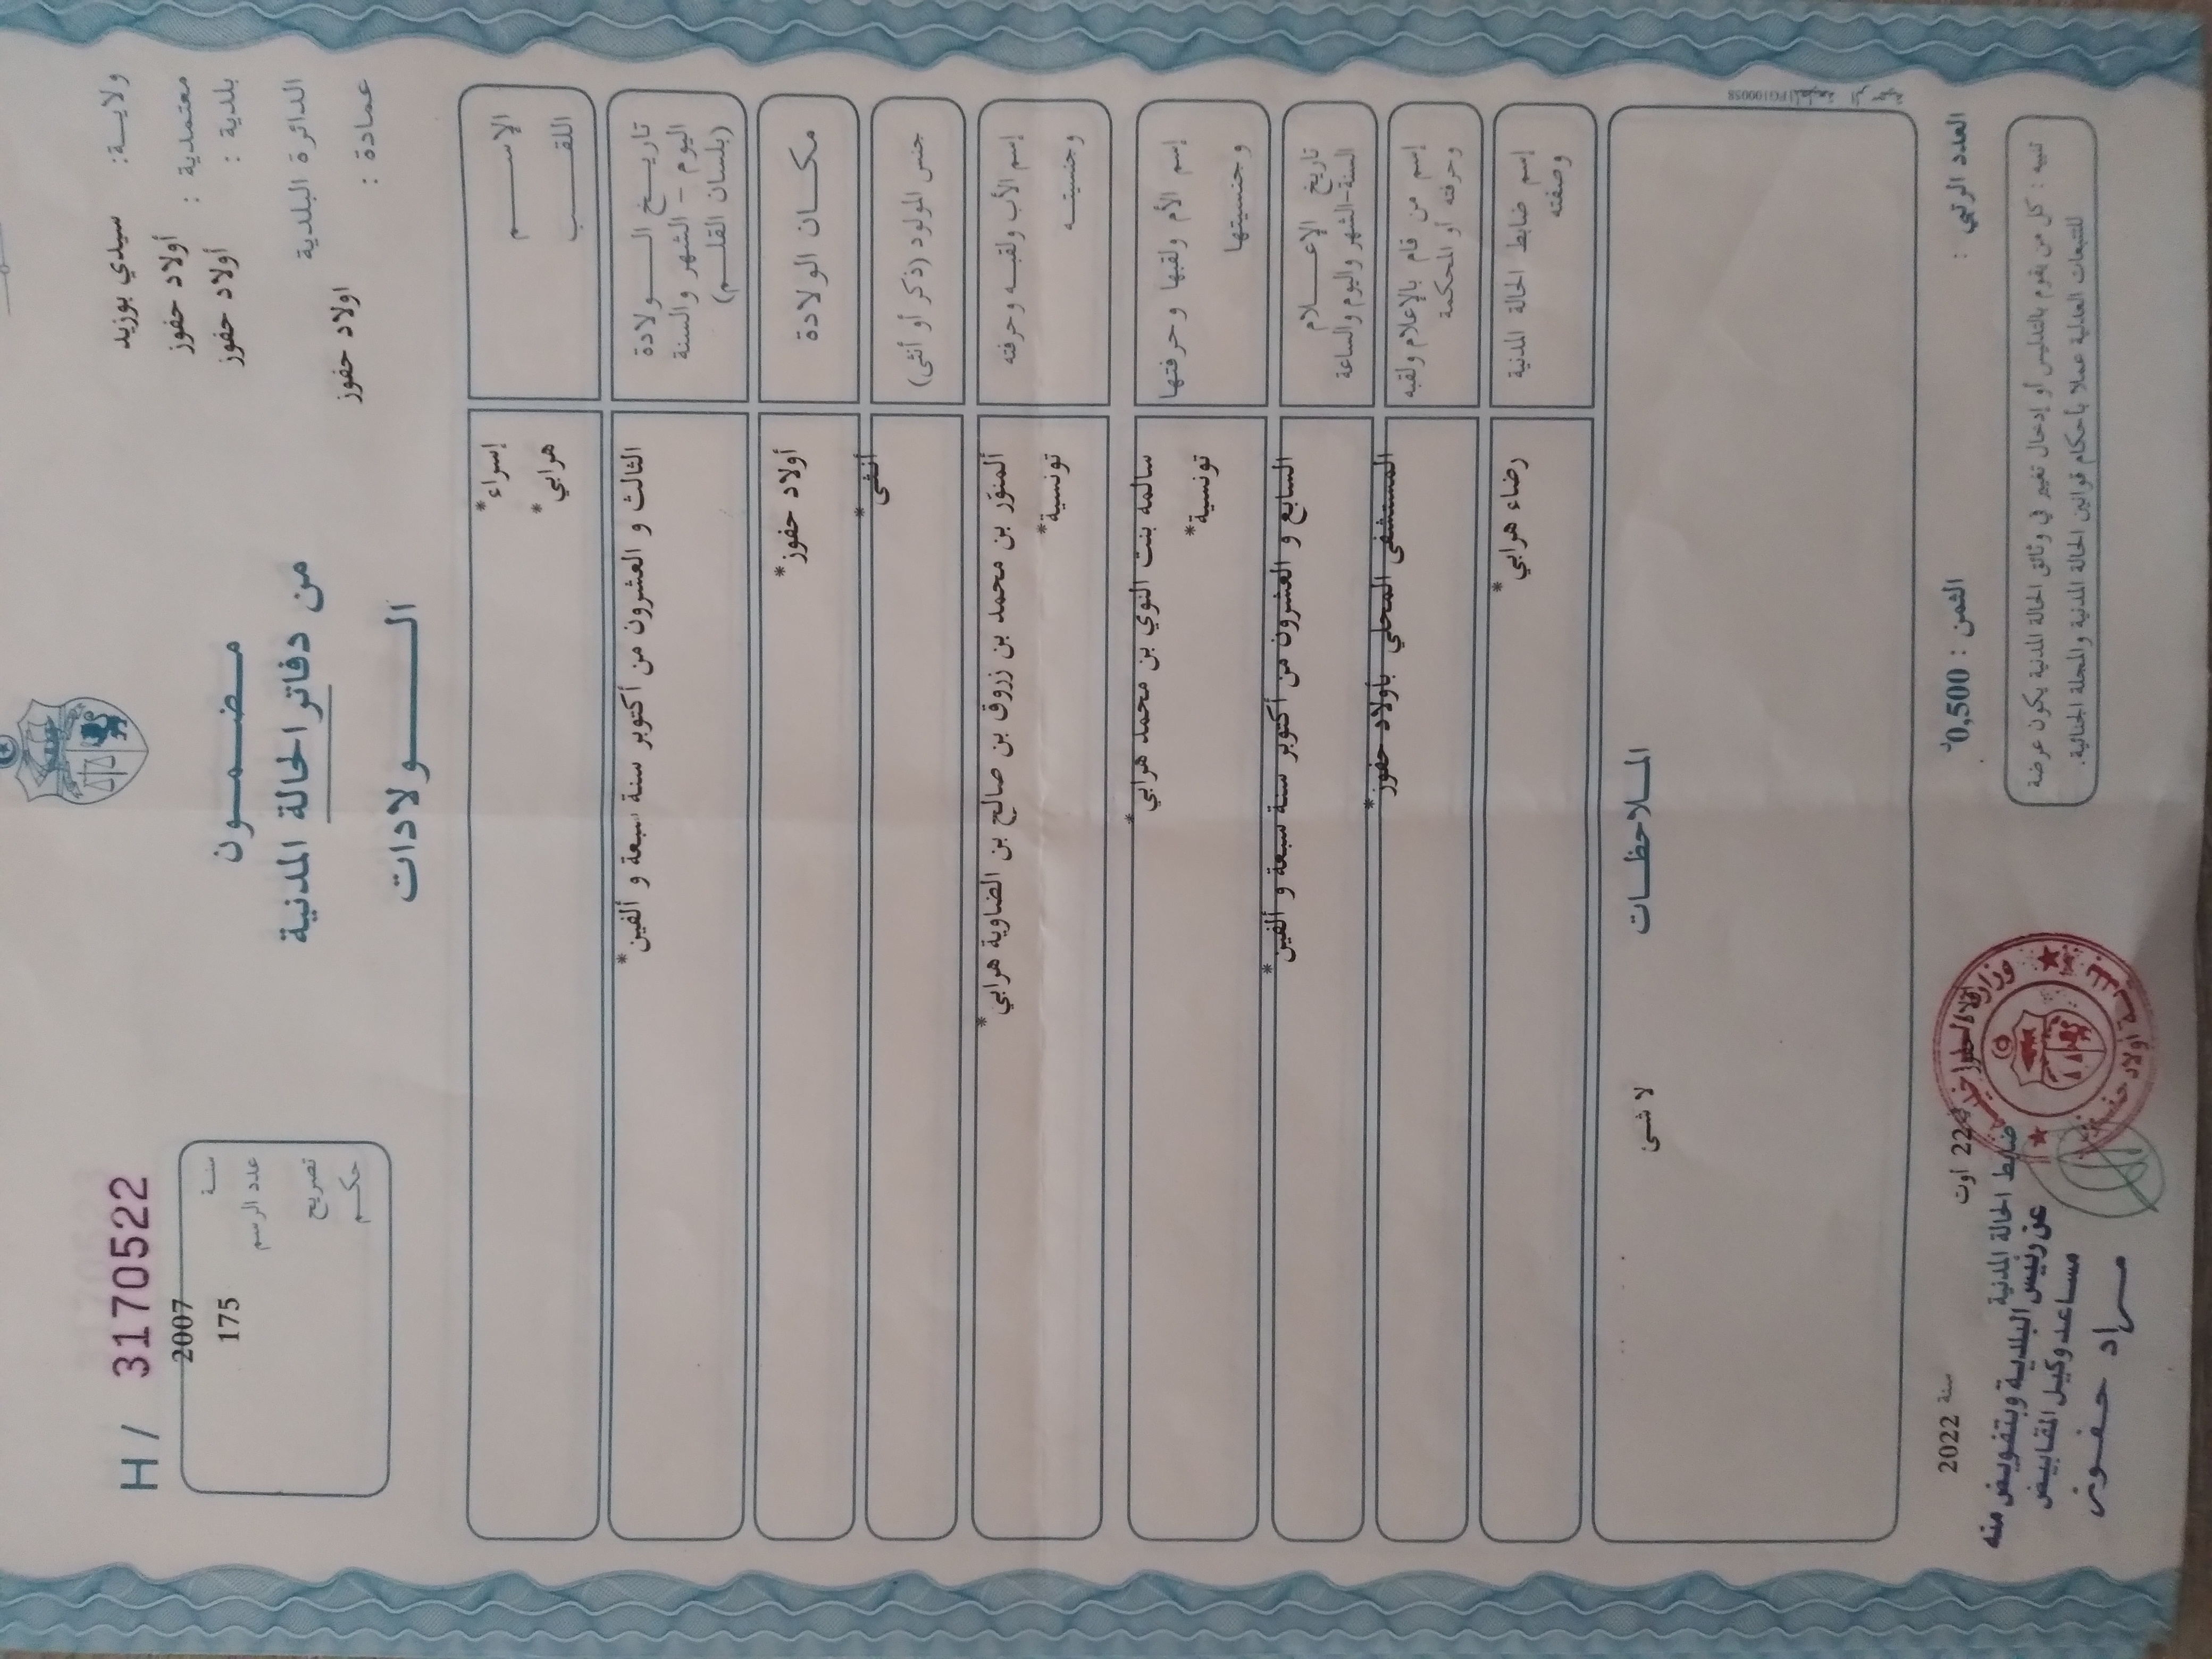 ولايــة: سيدي بوزيد
معتمدية : أولاد حفوز
بلدية : أولاد حفوز
الدائرة البلدية
اولاد حفوز
عمادة :
مـضـمـون
من دفاتر الحالة المدنية
الـولادات
H/ 3170522
سنـة 2007
عدد الرسم 175
تصريح
حكـم
الإســم إسراء*
اللقـب هرابي*
تاريـخ الـولادة الثالث و العشرون من أكتوبر سنة سبعة و ألفين*
اليوم - الشهر والسنة
(بلسان القلـم)
مكـان الولادة أولاد حفوز*
جنس المولود (ذكر أو أنثى) أنثى*
إسم الأب ولقبـه وحرفته المنوّر بن محمد بن زروق بن صالح بن الضاوية هرابي*
وجنسيتـه تونسية*
إسم الأم ولقبها وحرفتها سالمه بنت النوي بن محمد هرابي*
وجنسيتها تونسية*
تاريخ الإعـلام السابع و العشرون من أكتوبر سنة سبعة و ألفين*
السنة-الشهر واليوم والساعة
إسم من قام بالإعلام ولقبه المستشفى المحلي بأولاد حفوز*
وحرفته أو المحكمة
إسم ضابط الحالة المدنية رضاء هرابي*
وصفته
الملاحظـات
لا شئ
FG100058
العدد الرتبي :
الثمن : 0,500د
22 اوت سنة 2022
تنبيه : كل من يقوم بالتدليس أو إدخال تغيير في وثائق الحالة المدنية يكون عرضة
للتتبعات العدلية عملا بأحكام قوانين الحالة المدنية والمجلة الجنائية.
ضابط الحالة المدنية
عن رئيس البلدية وبتفويض منه
مساعد وكيل المقابيض
مـراد حـفـوز